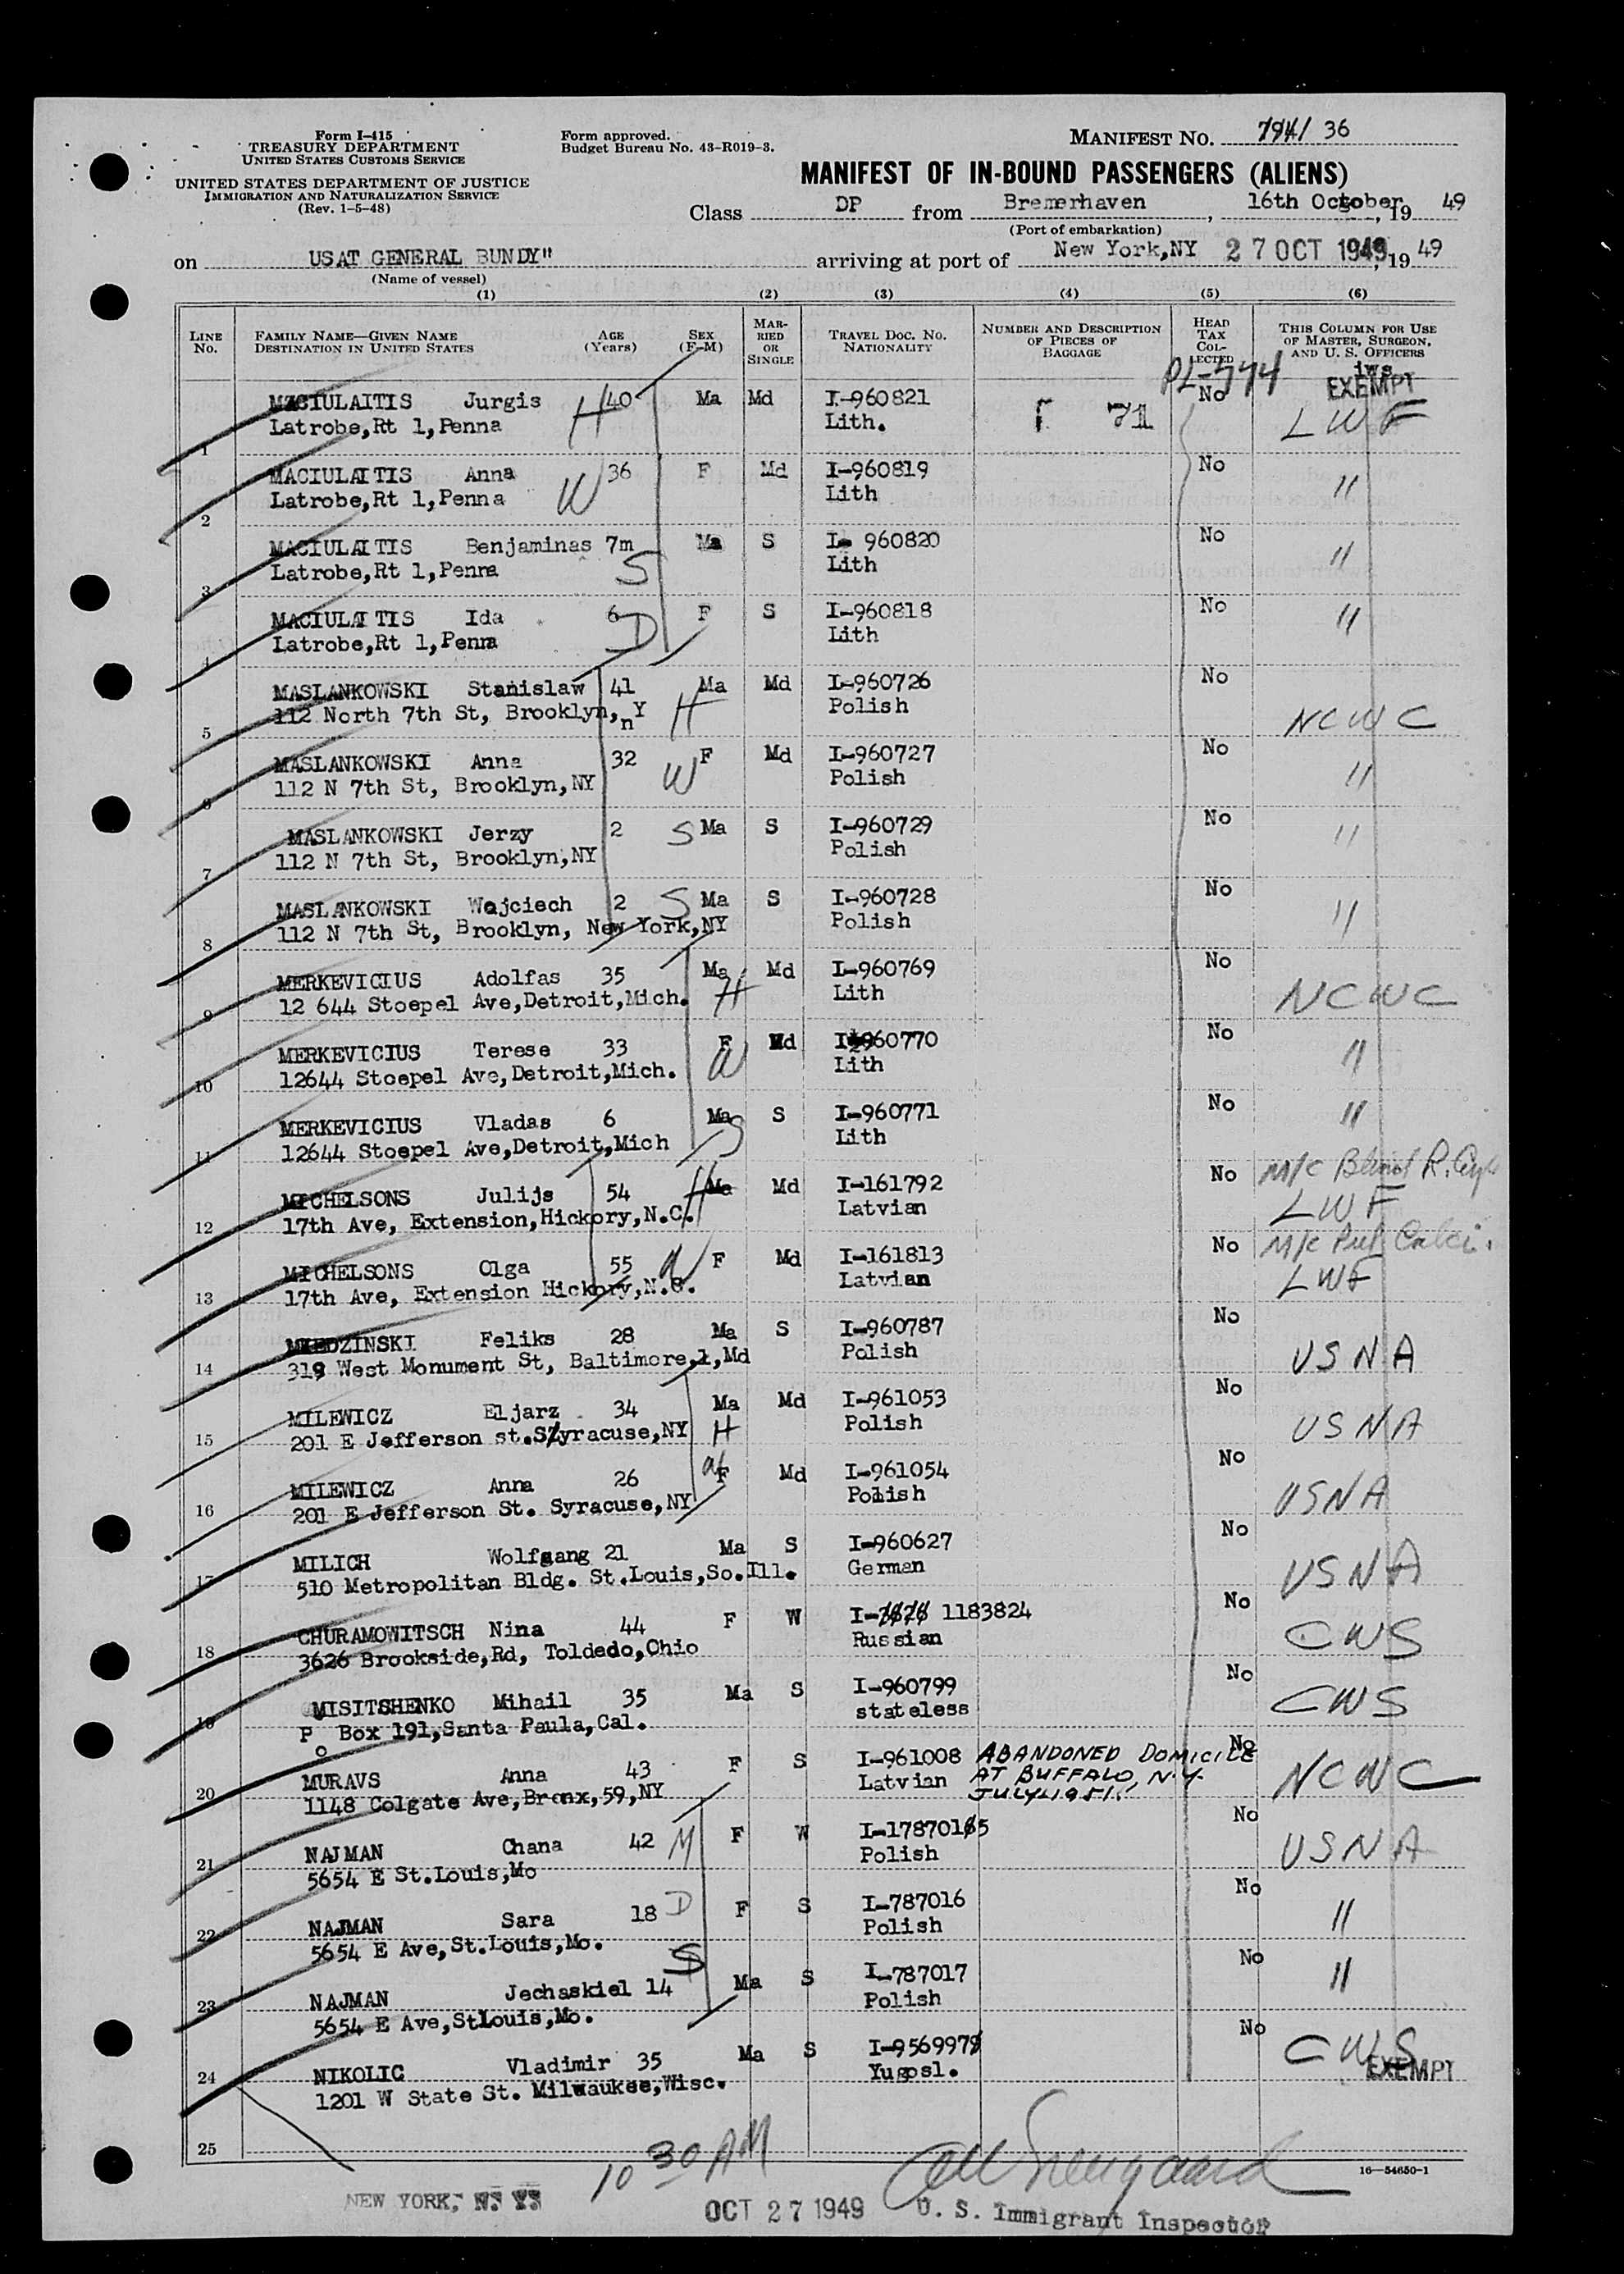 Form I-415
TREASURY DEPARTMENT
UNITED STATES CUSTOMS SERVICE
UNITED STATES DEPARTMENT OF JUSTICE
IMMIGRATION AND NATURALIZATION SERVICE
(Rev. 1-5-48)
Form approved.
Budget Bureau No. 43-R019-3.
MANIFEST NO. 36
MANIFEST OF IN-BOUND PASSENGERS (ALIENS)
Class DP from Bremerhaven, 16th October, 19 49
(Port of embarkation)
on USAT GENERAL BUNDY" arriving at port of New York,NY 27 OCT 1949, 19 49
(Name of vessel)
(1) (2) (3) (4) (5) (6)
LINE No. FAMILY NAME—GIVEN NAME DESTINATION IN UNITED STATES AGE (Years) SEX (F-M) MARRIED OR SINGLE TRAVEL DOC. NO. NATIONALITY NUMBER AND DESCRIPTION OF PIECES OF BAGGAGE HEAD TAX COLLECTED THIS COLUMN FOR USE OF MASTER, SURGEON, AND U. S. OFFICERS
PL-774 iws EXEMPT
MACIULAITIS Jurgis H 40 Ma Md I-960821 No LWF
1 Latrobe,Rt 1,Penna Lith. 71
MACIULAITIS Anna W 36 F Md I-960819 No "
2 Latrobe,Rt 1,Penna Lith
MACIULAITIS Benjaminas 7m S Ma S I- 960820 No "
3 Latrobe,Rt 1,Penna Lith
MACIULAITIS Ida 6 D F S I-960818 No "
4 Latrobe,Rt 1,Penna Lith
MASLANKOWSKI Stanislaw 41 H Ma Md I-960726 No NCWC
5 112 North 7th St, Brooklyn,nY Polish
MASLANKOWSKI Anna 32 W F Md I-960727 No "
6 112 N 7th St, Brooklyn,NY Polish
MASLANKOWSKI Jerzy 2 S Ma S I-960729 No "
7 112 N 7th St, Brooklyn,NY Polish
MASLANKOWSKI Wojciech 2 S Ma S I-960728 No "
8 112 N 7th St, Brooklyn, New York,NY Polish
MERKEVICIUS Adolfas 35 H Ma Md I-960769 No NCWC
9 12 644 Stoepel Ave,Detroit,Mich. Lith
MERKEVICIUS Terese 33 W F Md I-960770 No "
10 12644 Stoepel Ave,Detroit,Mich. Lith
MERKEVICIUS Vladas 6 S Ma S I-960771 No "
11 12644 Stoepel Ave,Detroit,Mich Lith
MICHELSONS Julijs 54 H Ma Md I-161792 No M/C Blind R. LWF
12 17th Ave, Extension,Hickory,N.C. Latvian
MICHELSONS Olga 55 W F Md I-161813 No M/C Calci. LWF
13 17th Ave, Extension Hickory,N.C. Latvian
MIEDZINSKI Feliks 28 Ma S I-960787 No USNA
14 319 West Monument St, Baltimore,1,Md Polish
MILEWICZ Eljarz 34 H Ma Md I-961053 No USNA
15 201 E Jefferson st.Syracuse,NY Polish
MILEWICZ Anna 26 W F Md I-961054 No USNA
16 201 E Jefferson St. Syracuse,NY Polish
MILICH Wolfgang 21 Ma S I-960627 No USNA
17 510 Metropolitan Bldg. St.Louis,So.Ill. German
CHURAMOWITSCH Nina 44 F W I- 1183824 No CWS
18 3626 Brookside,Rd, Toldedo,Ohio Russian
MISITSHENKO Mihail 35 Ma S I-960799 No CWS
19 Po Box 191,Santa Paula,Cal. stateless
MURAVS Anna 43 F S I-961008 ABANDONED DOMICILE No NCWC
20 1148 Colgate Ave,Bronx,59,NY Latvian AT BUFFALO, N.Y.
JULY 1951.
NAJMAN Chana 42 M F W I-1787015 No USNA
21 5654 E St.Louis,Mo Polish
NAJMAN Sara 18 D F S I-787016 No "
22 5654 E Ave,St.Louis,Mo. Polish
NAJMAN Jechaskiel 14 S Ma S I-787017 No "
23 5654 E Ave,StLouis,Mo. Polish
NIKOLIC Vladimir 35 Ma S I-956997 No CWS
24 1201 W State St. Milwaukee,Wisc. Yugosl. EXEMPT
25
10 30 AM
16—54650-1
NEW YORK, N. Y. OCT 27 1949 U. S. Immigrant Inspector